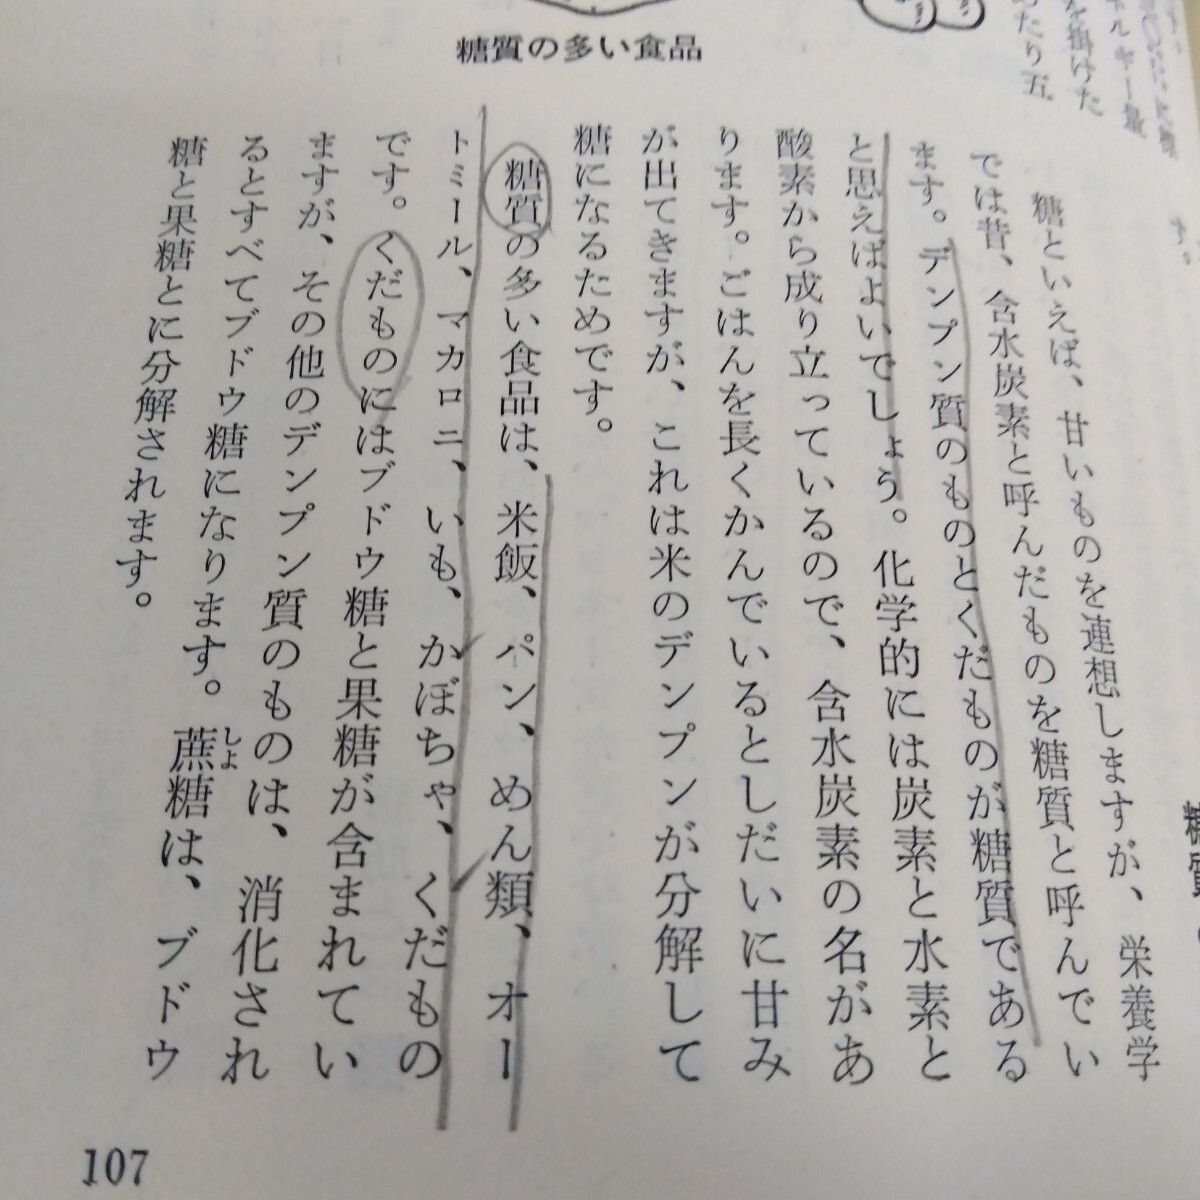 糖質の多い食品
糖といえば、甘いものを連想しますが、栄養学
では昔、含水炭素と呼んだものを糖質と呼んでい
ます。デンプン質のものとくだものが糖質である
と思えばよいでしょう。化学的には炭素と水素と
酸素から成り立っているので、含水炭素の名があ
ります。ごはんを長くかんでいるとしだいに甘み
が出てきますが、これは米のデンプンが分解して
糖になるためです。
糖質の多い食品は、米飯、パン、めん類、オー
トミール、マカロニ、いも、かぼちゃ、くだもの
です。くだものにはブドウ糖と果糖が含まれてい
ますが、その他のデンプン質のものは、消化され
るとすべてブドウ糖になります。蔗糖は、ブドウ
しょ
糖と果糖とに分解されます。
107